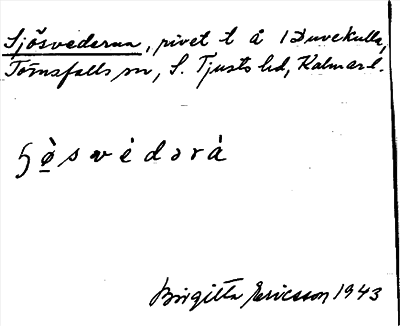 Sjösvederna, rivet t å 1 Duvekulla,
Törnsfalls sn, S. Tjusts hd, Kalmar l.
ʃø̱̀svèdərà
Birgitta Ericsson 1943